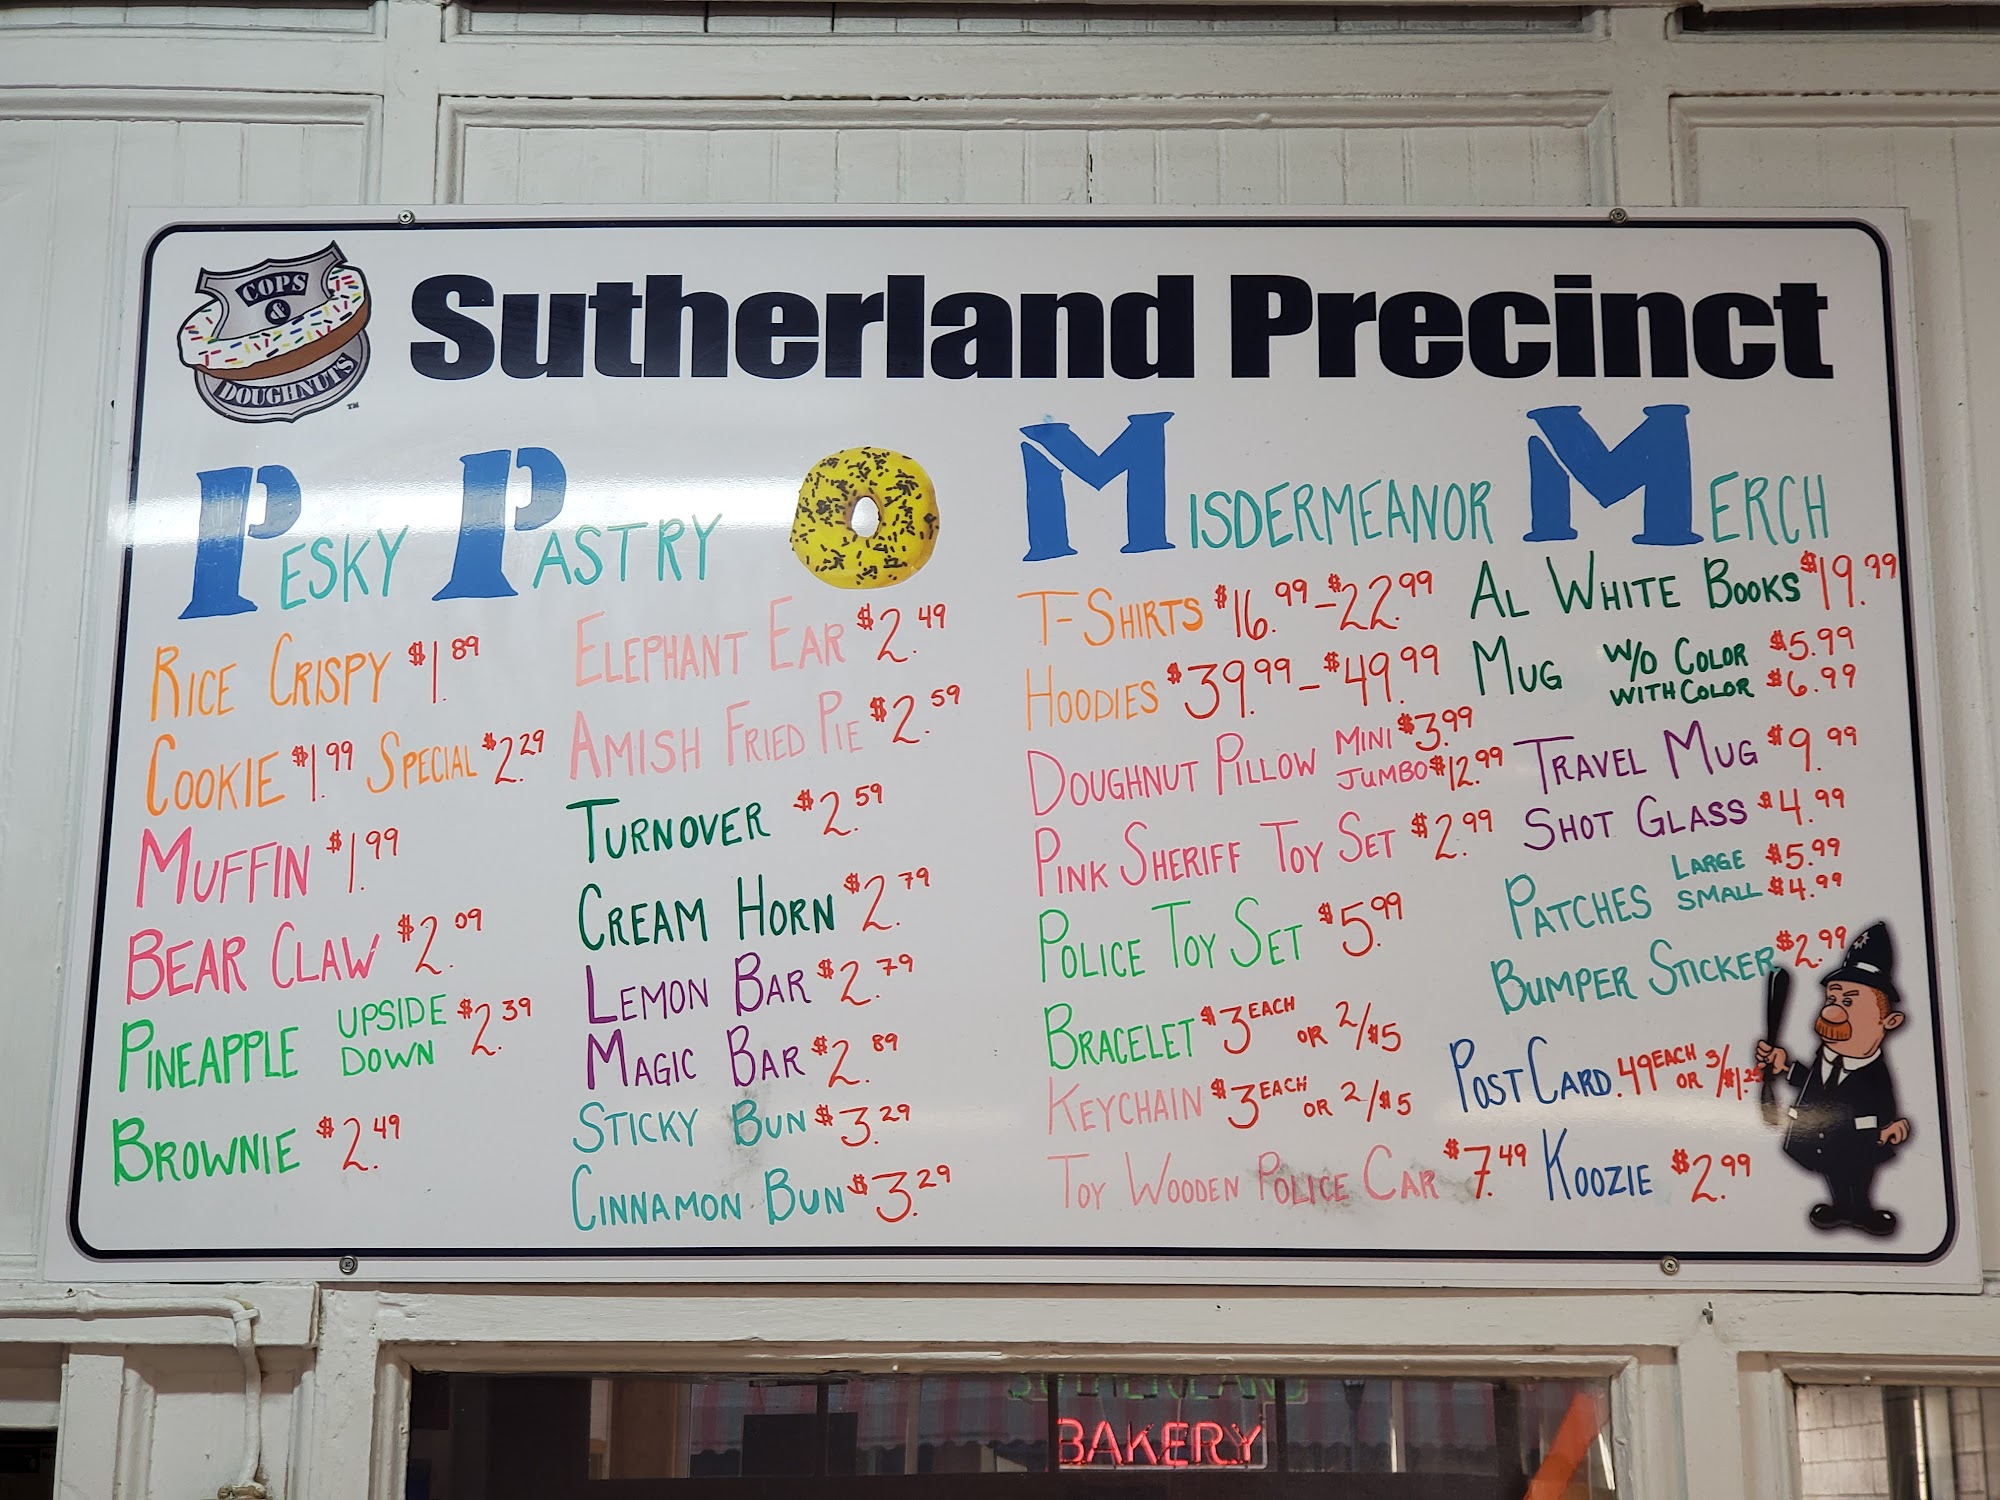 COPS
&
DOUGHNUTS
TM
Sutherland Precinct
PESKY PASTRY
RICE CRISPY $1.89
COOKIE $1.99 SPECIAL $2.29
MUFFIN $1.99
BEAR CLAW $2.09
PINEAPPLE UPSIDE DOWN $2.39
BROWNIE $2.49
ELEPHANT EAR $2.49
AMISH FRIED PIE $2.59
TURNOVER $2.59
CREAM HORN $2.79
LEMON BAR $2.79
MAGIC BAR $2.89
STICKY BUN $3.29
CINNAMON BUN $3.29
MISDERMEANOR MERCH
T-SHIRTS $16.99-$22.99
HOODIES $39.99-$49.99
DOUGHNUT PILLOW MINI $3.99
JUMBO $12.99
PINK SHERIFF TOY SET $2.99
POLICE TOY SET $5.99
BRACELET $3 EACH OR 2/$5
KEYCHAIN $3 EACH OR 2/$5
TOY WOODEN POLICE CAR $7.49
AL WHITE BOOKS $19.99
MUG W/O COLOR $5.99
WITH COLOR $6.99
TRAVEL MUG $9.99
SHOT GLASS $4.99
PATCHES LARGE $5.99
SMALL $4.99
BUMPER STICKER $2.99
POSTCARD .49 EACH OR 3/$1.25
KOOZIE $2.99
SUTHERLAND
BAKERY